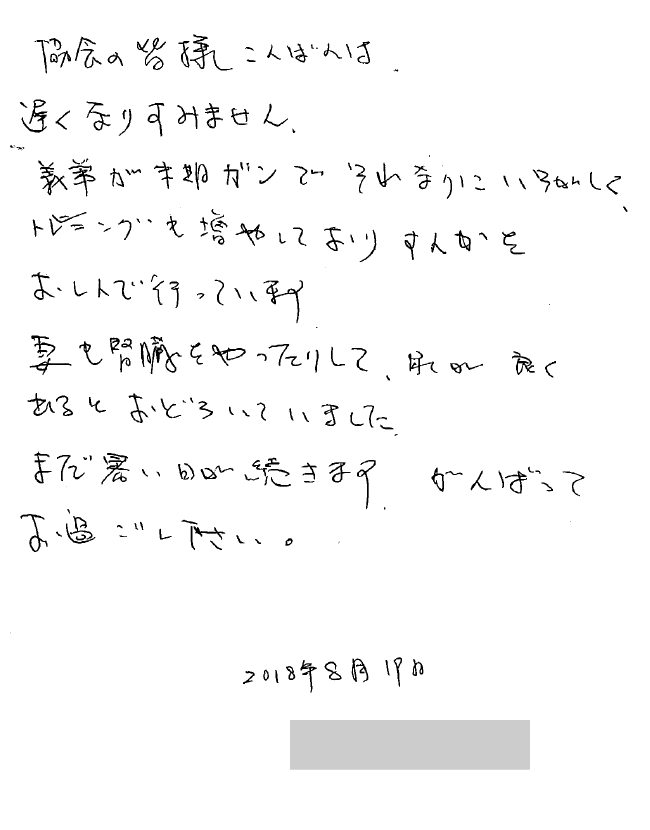 協会の皆様こんばんは.
遅くなりすみません.
義弟が末期ガンで それなりにいそがしく、
トレーニングも増やしており すんかを
おしんで行っています
妻も腎臓をやったりして、 が 良く
あるとおどろいていました.
まだ暑い日が続きます. がんばって
お過ごし下さい。
2018年8月19日